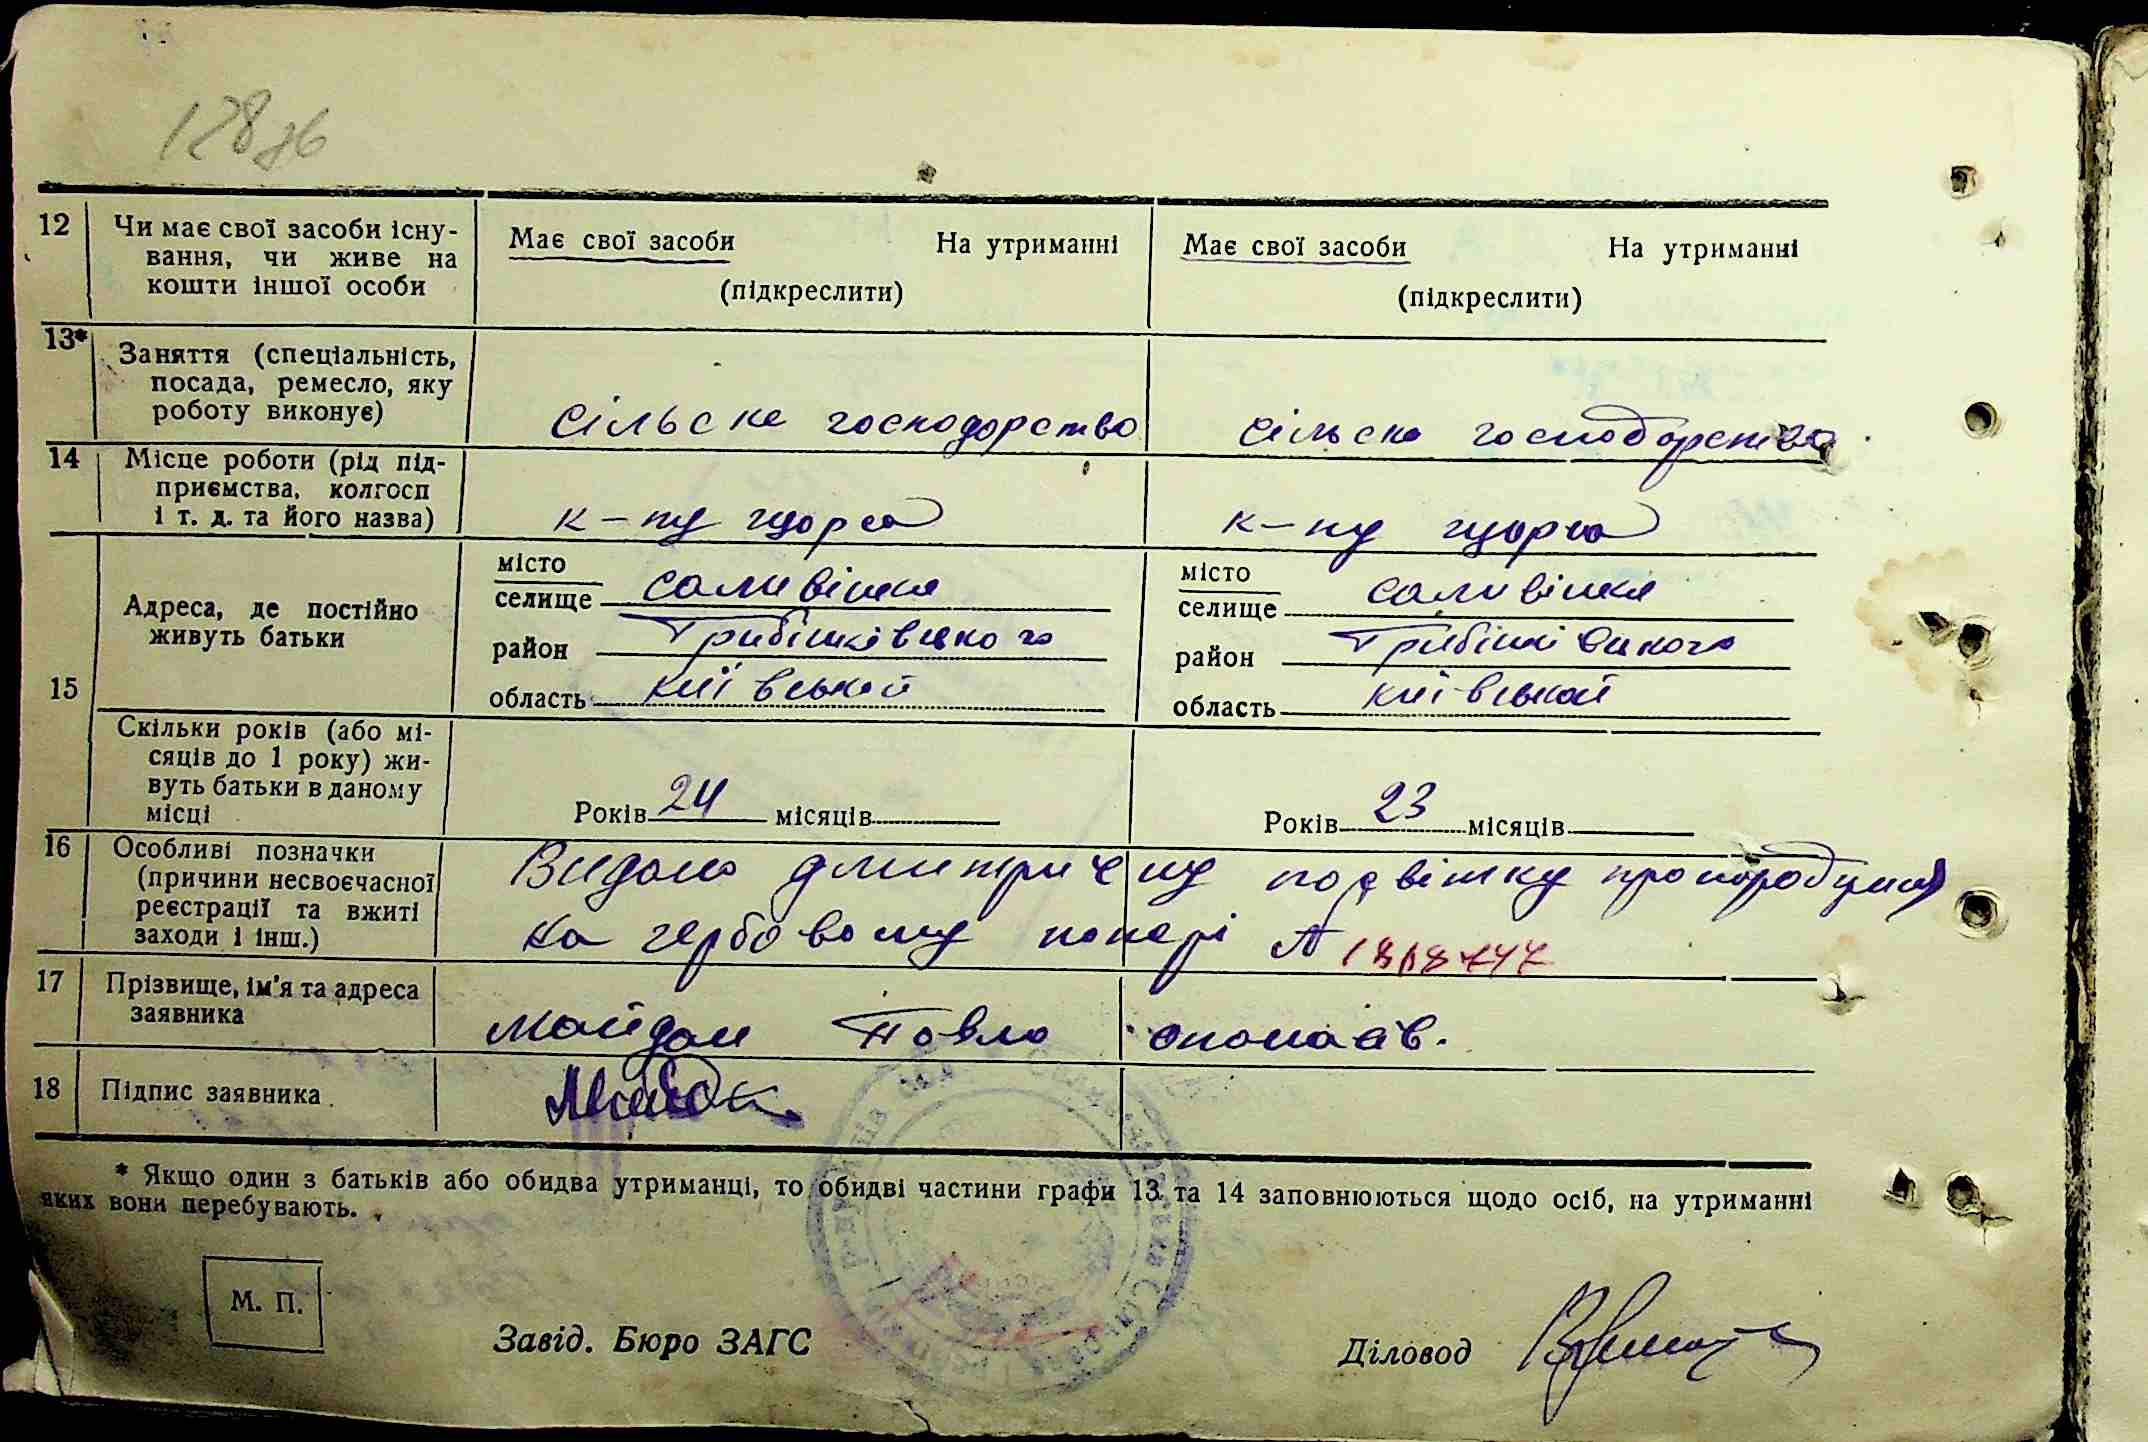 128зв
12 Чи має свої засоби існу-
вання, чи живе на
кошти іншої особи
Має свої засоби На утриманні
(підкреслити)
Має свої засоби На утриманні
(підкреслити)
13* Заняття (спеціальність,
посада, ремесло, яку
роботу виконує)
сільске господорство
сільске господорство
14 Місце роботи (рід під-
приємства, колгосп
і т. д. та його назва)
к-пу щорса
к-пу щорса
15 Адреса, де постійно
живуть батьки
місто
селище саливінки
район Гребінківського
область київській
місто
селище саливінки
район Гребінківського
область київській
Скільки років (або мі-
сяців до 1 року) жи-
вуть батьки в даному
місці
Років 24 місяців
Років 23 місяців
16 Особливі позначки
(причини несвоєчасної
реєстрації та вжиті
заходи і інш.)
Видано посвітку
на гербовому папері
17 Прізвище, ім'я та адреса
заявника
Майдан Павло
18 Підпис заявника
* Якщо один з батьків або обидва утриманці, то обидві частини графи 13 та 14 заповнюються щодо осіб, на утриманні
яких вони перебувають.
М. П.
Завід. Бюро ЗАГС
Діловод